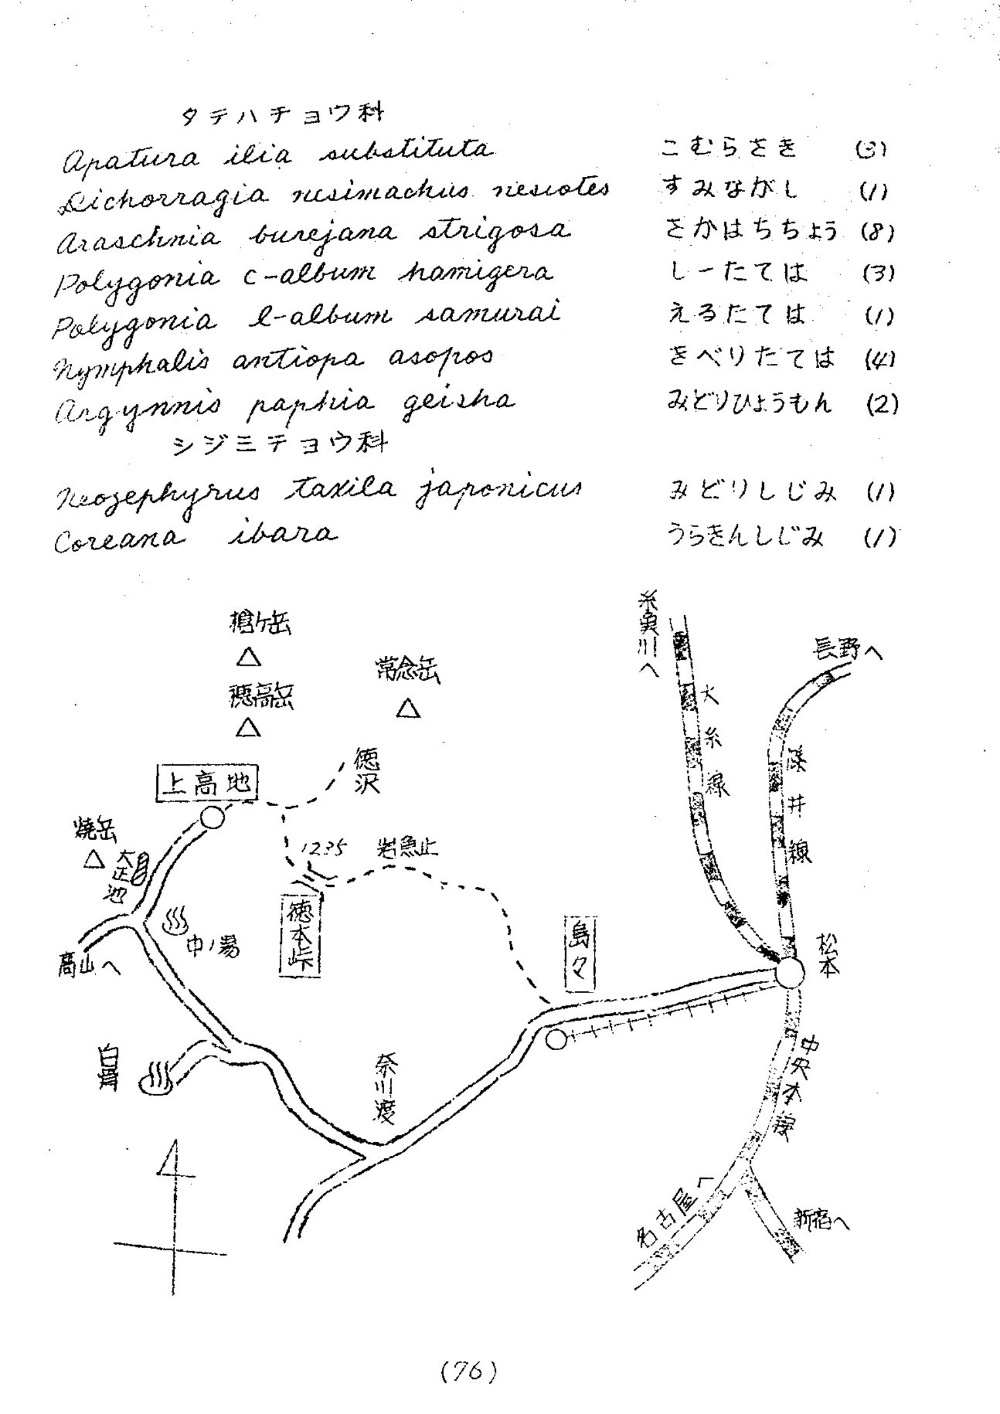 タテハチョウ科
Apatura ilia substituta こむらさき (3)
Dichorragia nesimachus nesiotes すみながし (1)
Araschnia burejana strigosa さかはちちょう (8)
Polygonia c-album hamigera しーたては (3)
Polygonia l-album samurai えるたては (1)
Nymphalis antiopa asopos きべりたては (4)
Argynnis paphia geisha みどりひょうもん (2)
シジミチョウ科
Neozephyrus taxila japonicus みどりしじみ (1)
Coreana ibara うらきんしじみ (1)
槍ケ岳
穂高岳
常念岳
糸魚川へ
長野へ
大糸線
篠井線
徳沢
上高地
焼岳
大正池
1235
岩魚止
徳本峠
中ノ湯
高山へ
島々
松本
白骨
奈川渡
中央本線
名古屋へ
新宿へ
(76)